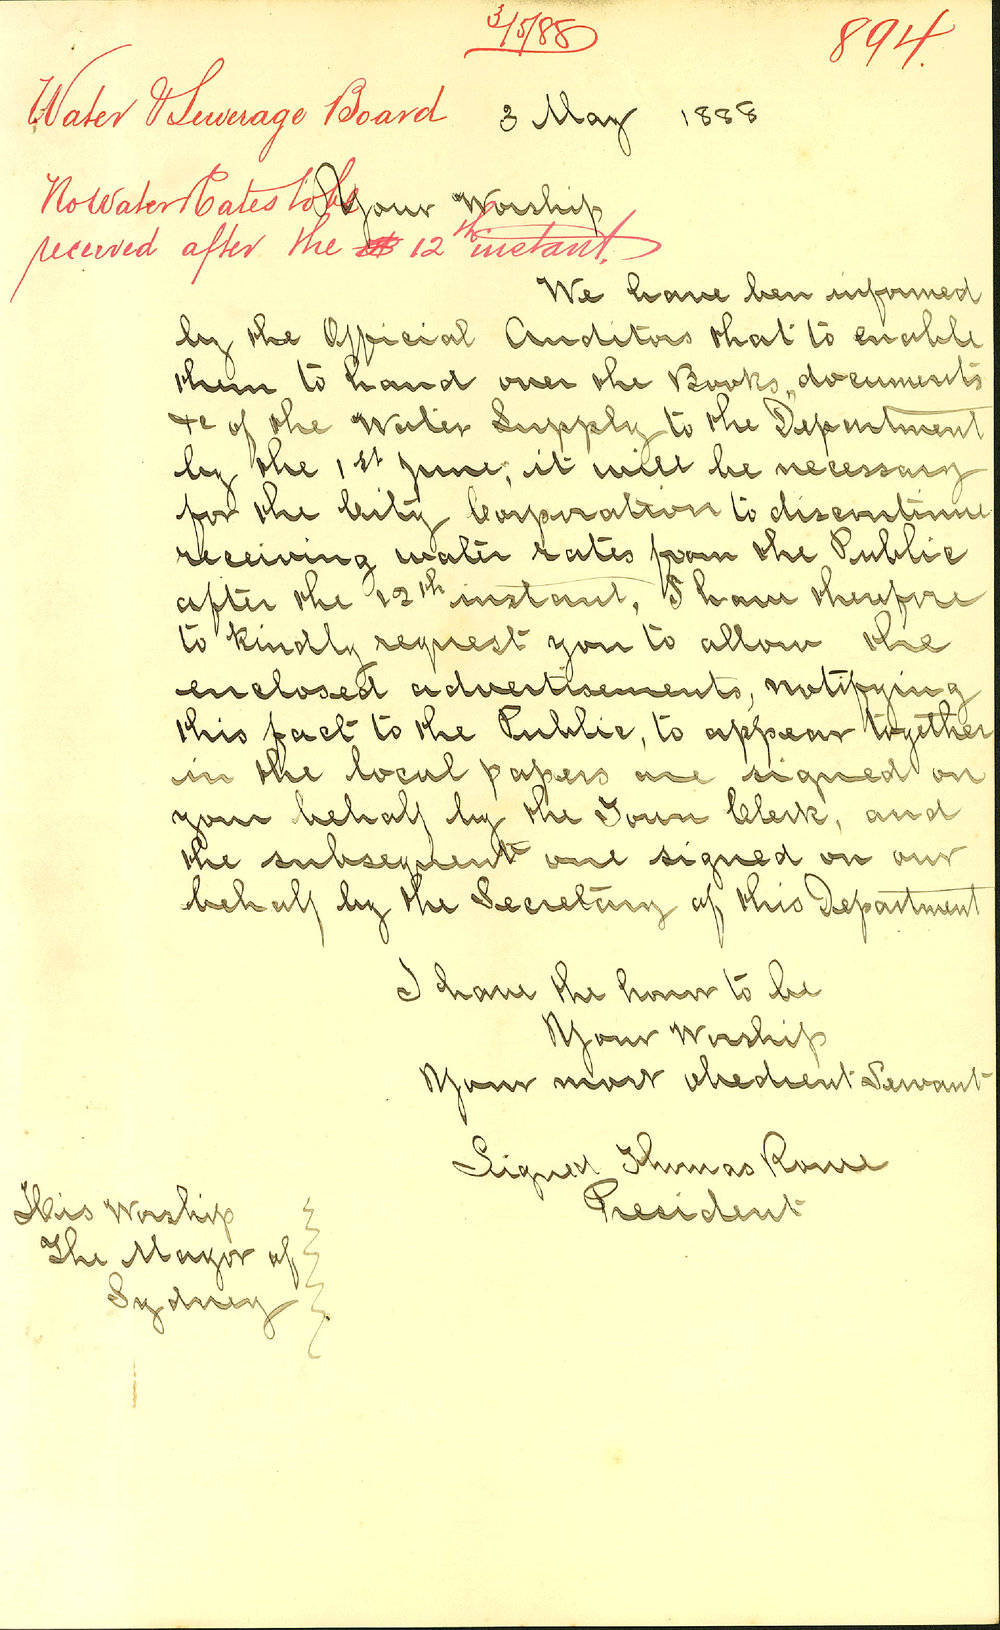 3/5/88
894.
Water & Sewerage Board
3 May 1888
No Water Rates to be
received after the 12th instant.
Your Worship
We have been informed
by the Official Auditors that to enable
them to hand over the Books, documents
&c of the Water Supply to the Department
by the 1st June, it will be necessary
for the City Corporation to discontinue
receiving water rates from the Public
after the 12th instant, I have therefore
to kindly request you to allow the
enclosed advertisements, notifying
this fact to the Public, to appear together
in the local papers one signed on
your behalf by the Town Clerk, and
the subsequent one signed on our
behalf by the Secretary of this Department
I have the honor to be
Your Worship
Your most obedient Servant
Signed Thomas Rowe
President
His Worship
The Mayor of
Sydney